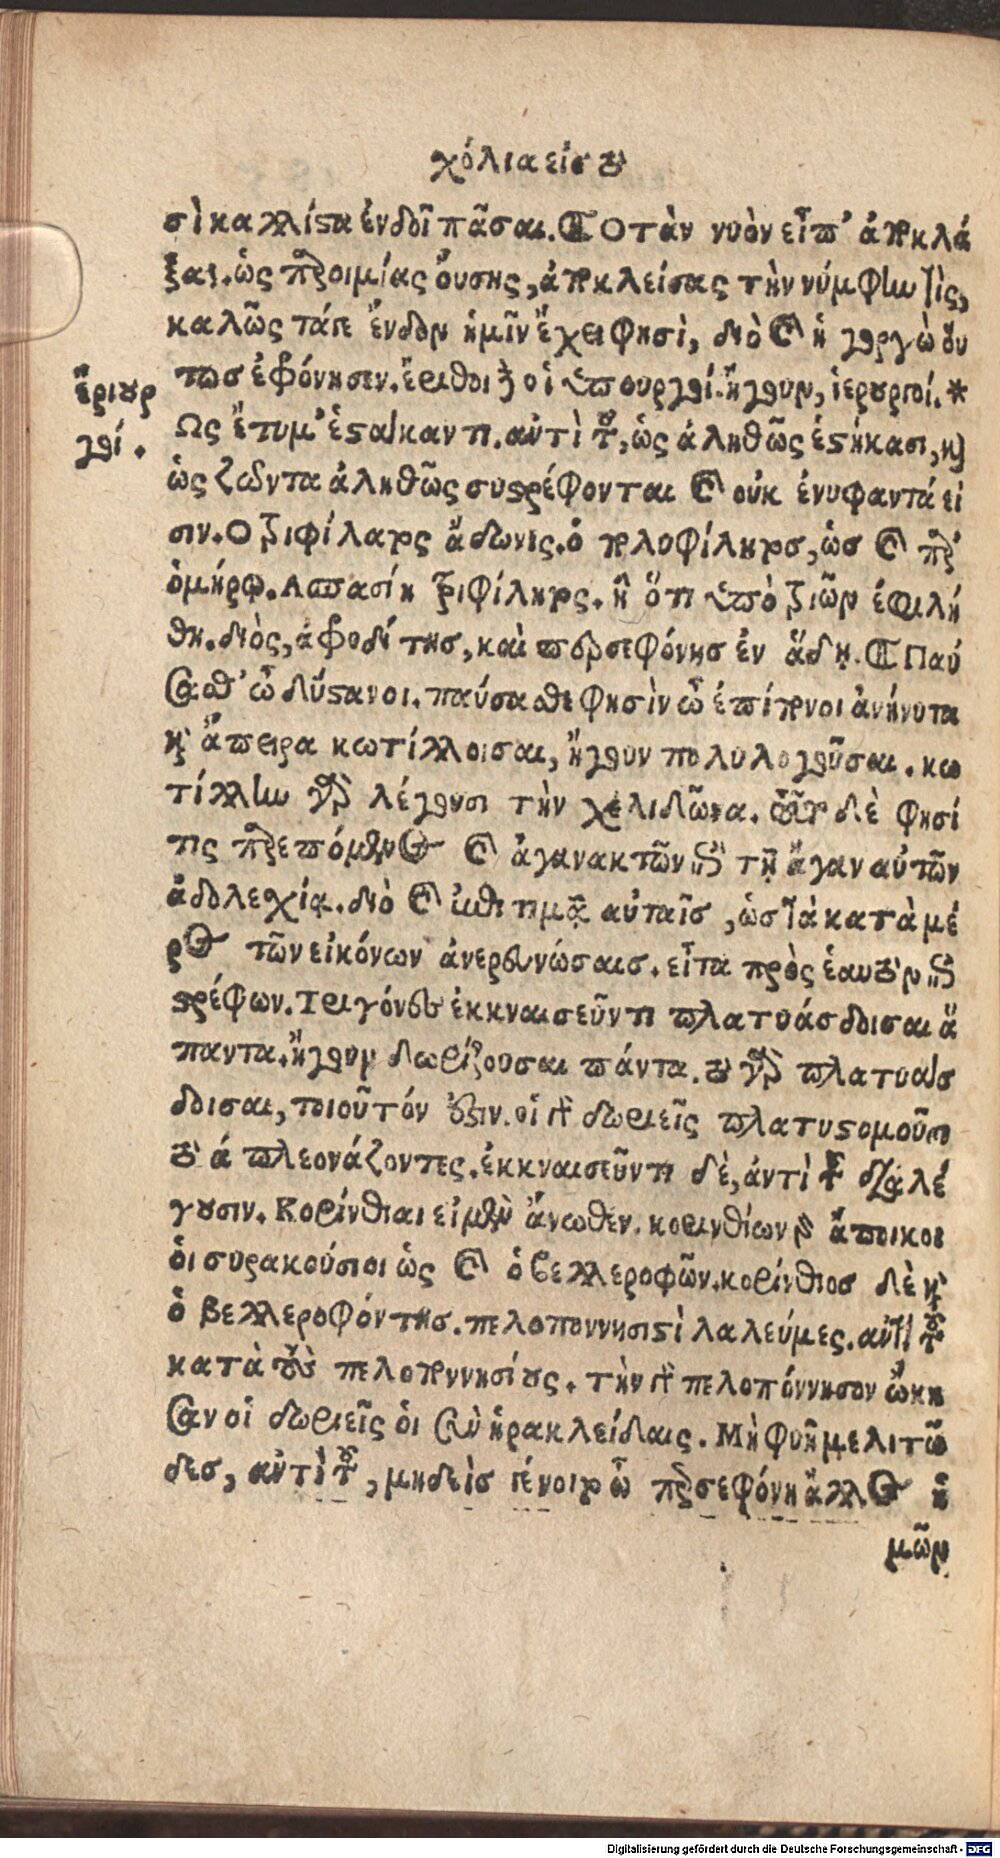 χόλια εἰς τὸ
σὶ κάλλιστα ἐνδοῖ πᾶσαι. Ὅταν νυὸν εἶπ' ἀποκλά
ξας. ὡς παροιμίας οὔσης, ἀποκλείσας τὴν νύμφην τὶς,
καλῶς τάπε ἔνδον ἡμῖν ἔχει φησὶ, διὸ καὶ ἡ γοργὼ οὕ
τως ἐφώνησεν. ἔριθοι οἱ ὑπουργοί. ἤγουν, ἱερουργοί. *
ἔριουρ
γοί.
Ως ἔτυμ' ἑστάκαντι. αὐτὶ τοῦ, ὡς ἀληθῶς ἑστήκασι, καὶ
ὡς ζῶντα ἀληθῶς συστρέφονται καὶ οὐκ ἐνυφαντά εἰ
σιν. Ο τριφίλατος ἄδωνις. ὁ πολυφίλητος, ὡς καὶ παρ'
ὁμήρῳ. Ασπασίη τριφίλητος. ἢ ὅτι ὑπὸ τριῶν ἐφιλή
θη. διὸς, ἀφροδίτης, καὶ περσεφόνης ἐν ἅδῃ. Παύ
σασθ' ὦ δύστανοι. παύσασθε φησὶν ὦ ἐπίπονοι ἀνήνυτα
καὶ ἄπειρα κωτίλλοισαι, ἤγουν πολυλογοῦσαι. κω
τίλλην γὰρ λέγουσι τὴν χελιδῶνα. τοῦτο δὲ φησί
τις παρεπόμενος καὶ ἀγανακτῶν ἐπὶ τῇ ἄγαν αὐτῶν
ἀδολεχίᾳ. διὸ καὶ ἐπιτιμᾷ αὐταῖς, ὡς τὰ κατὰ μέ
ρος τῶν εἰκόνων ἀνερευνώσαις. εἶτα πρὸς ἑαυτὸν ἐπι
στρέφων. Τρυγόνες ἐκκναισεῦντι πλατυάσδοισαι ἅ
παντα. ἤγουν δωρίζουσαι πάντα. τὸ γὰρ πλατυάσ
δοισαι, τοιοῦτόν ἐστιν. οἱ γὰρ δωριεῖς πλατυστομοῦσι
τὸ ά πλεονάζοντες. ἐκκναισεῦντι δὲ, ἀντὶ τοῦ διαλέ
γουσιν. Κορίνθιαι εἰμὲν ἄνωθεν. κορινθίων γὰρ ἄποικοι
οἱ συρακούσιοι ὡς καὶ ὁ βελλεροφῶν. κορίνθιος δὲ καὶ
ὁ βελλεροφόντης. πελοποννησιστὶ λαλεύμες. αντὶ τοῦ
κατὰ τοὺς πελοποννησίους. τὴν γὰρ πελοπόννησον ᾤκη
σαν οἱ δωριεῖς οἱ σὺν ἡρακλείδαις. Μὴ φυῇ μελιτῶ
δες, αὐτὶ τοῦ, μηδεὶς γένοιτο ὦ περσεφόνη ἄλλος ἡ
μῶν